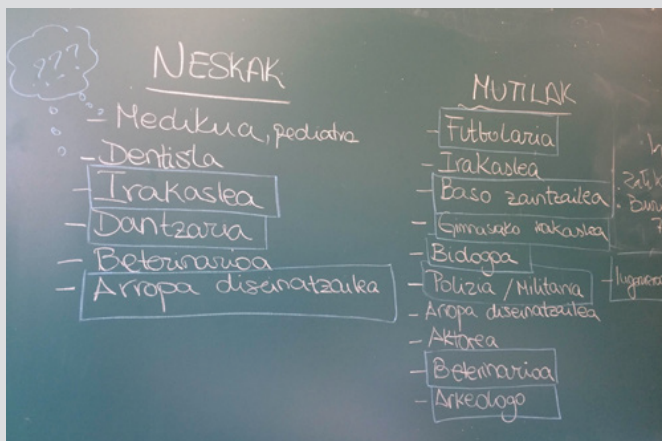 ???
NESKAK
- Medikua, pediatra
- Dentista
- Irakaslea
- Dantzaria
- Beterinarioa
- Arropa diseinatzailea
MUTILAK
- Futbolaria
- Irakaslea
- Baso zaintzailea
- Gimnasiako irakaslea
- Biologoa
- Polizia / Militarra
- Aropa diseinatzailea
- Aktorea
- Beterinarioa
- Arkeologo